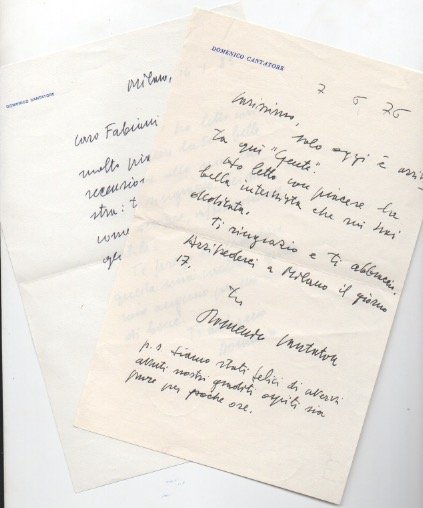 DOMENICO CANTATORE
Milano,
caro Fabiani
molto pia
recensio
stra: t
come
ge
DOMENICO CANTATORE
7 6 76
Carissimo,
solo oggi è arri-
ta qui "Gente".
Ho letto con piacere la
bella intervista che mi hai
dedicata.
Ti ringrazio e ti abbraccio.
Arrivederci a Milano il giorno
17.
Tuo
Domenico Cantatore
p.s. siamo stati felici di avervi
avuti nostri graditi ospiti sia
pure per poche ore.